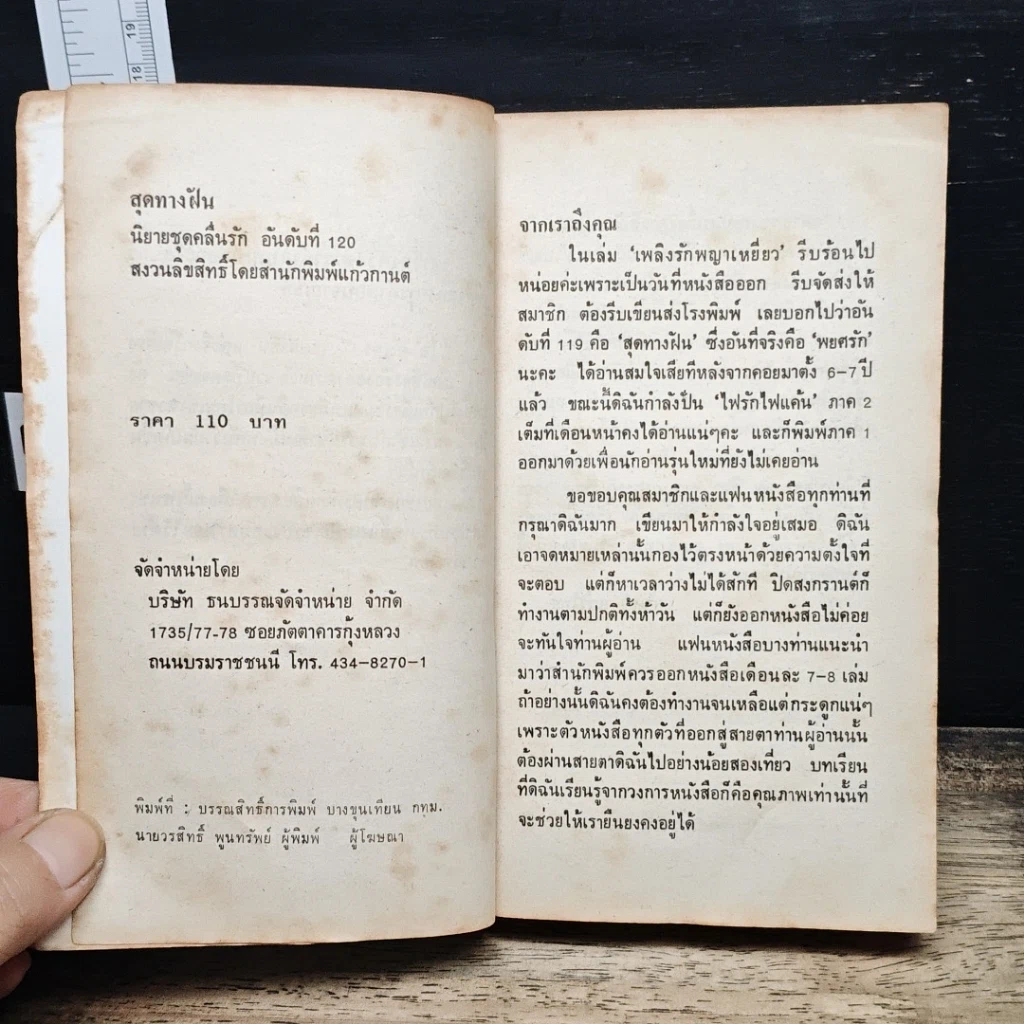 19
18
สุดทางฝัน
นิยายชุดคลื่นรัก อันดับที่ 120
สงวนลิขสิทธิ์โดยสำนักพิมพ์แก้วกานต์
ราคา 110 บาท
จัดจำหน่ายโดย
บริษัท ธนบรรณจัดจำหน่าย จำกัด
1735/77-78 ซอยภัตตาคารกุ้งหลวง
ถนนบรมราชชนนี โทร. 434-8270-1
พิมพ์ที่ : บรรณสิทธิ์การพิมพ์ บางขุนเทียน กทม.
นายวรสิทธิ์ พูนทรัพย์ ผู้พิมพ์ ผู้โฆษณา
จากเราถึงคุณ
ในเล่ม ‘เพลิงรักพญาเหยี่ยว’ รีบร้อนไป
หน่อยค่ะเพราะเป็นวันที่หนังสือออก รีบจัดส่งให้
สมาชิก ต้องรีบเขียนส่งโรงพิมพ์ เลยบอกไปว่าอัน
ดับที่ 119 คือ ‘สุดทางฝัน’ ซึ่งอันที่จริงคือ ‘พยศรัก’
นะคะ ได้อ่านสมใจเสียทีหลังจากคอยมาตั้ง 6-7 ปี
แล้ว ขณะนี้ดิฉันกำลังปั่น ‘ไฟรักไฟแค้น’ ภาค 2
เต็มที่เดือนหน้าคงได้อ่านแน่ๆคะ และก็พิมพ์ภาค 1
ออกมาด้วยเพื่อนักอ่านรุ่นใหม่ที่ยังไม่เคยอ่าน
ขอขอบคุณสมาชิกและแฟนหนังสือทุกท่านที่
กรุณาดิฉันมาก เขียนมาให้กำลังใจอยู่เสมอ ดิฉัน
เอาจดหมายเหล่านั้นกองไว้ตรงหน้าด้วยความตั้งใจที่
จะตอบ แต่ก็หาเวลาว่างไม่ได้สักที ปิดสงกรานต์ก็
ทำงานตามปกติทั้งห้าวัน แต่ก็ยังออกหนังสือไม่ค่อย
จะทันใจท่านผู้อ่าน แฟนหนังสือบางท่านแนะนำ
มาว่าสำนักพิมพ์ควรออกหนังสือเดือนละ 7-8 เล่ม
ถ้าอย่างนั้นดิฉันคงต้องทำงานจนเหลือแต่กระดูกแน่ๆ
เพราะตัวหนังสือทุกตัวที่ออกสู่สายตาท่านผู้อ่านนั้น
ต้องผ่านสายตาดิฉันไปอย่างน้อยสองเที่ยว บทเรียน
ที่ดิฉันเรียนรู้จากวงการหนังสือก็คือคุณภาพเท่านั้นที่
จะช่วยให้เรายืนยงคงอยู่ได้